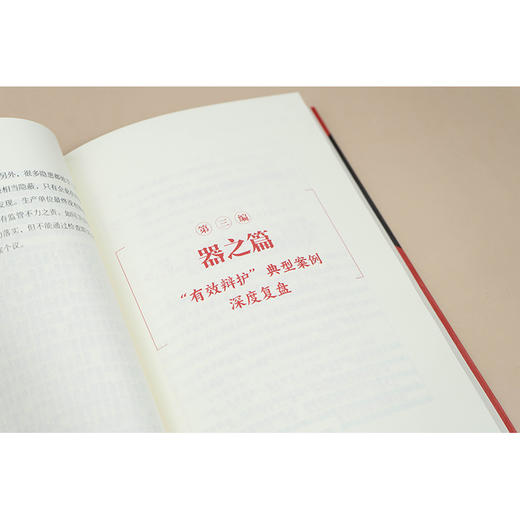 另外，很多隐患都
相当隐蔽，只有企业
发现。生产单位最终没
有监管不力之责，如同
落实，但不能通过检查
个议。
第三编
器之篇
“有效辩护”典型案例
深度复盘